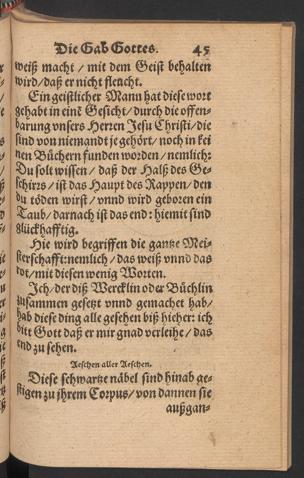 Die Gab Gottes. 45
weiß macht / mit dem Geist behalten
wird / daß er nicht fleucht.
Ein geistlicher Mann hat diese wort
gehabt in einē Gesicht / durch die offen-
barung vnsers Herren Jesu Christi / die
sind von niemandt je gehört / noch in kei
nen Büchern funden worden / nemlich:
Du solt wissen / daß der Halß des Ge-
schirrs / ist das Haupt des Rappen / den
du töden wirst / vnnd wird geboren ein
Taub / darnach ist das end: hiemit sind
glückhafftig.
Hie wird begriffen die gantze Mei-
sterschafft: nemlich / das weiß vnnd das
rot / mit diesen wenig Worten.
Ich / der diß Wercklin oder Büchlin
zusammen gesetzt vnnd gemachet hab /
hab diese ding alle gesehen biß hieher: ich
bitt Gott daß er mir gnad verleihe / das
end zu sehen.
Aeschen aller Aeschen.
Diese schwartze näbel sind hinab ge-
stigen zu jhrem Corpus / von dannen sie
außgan-